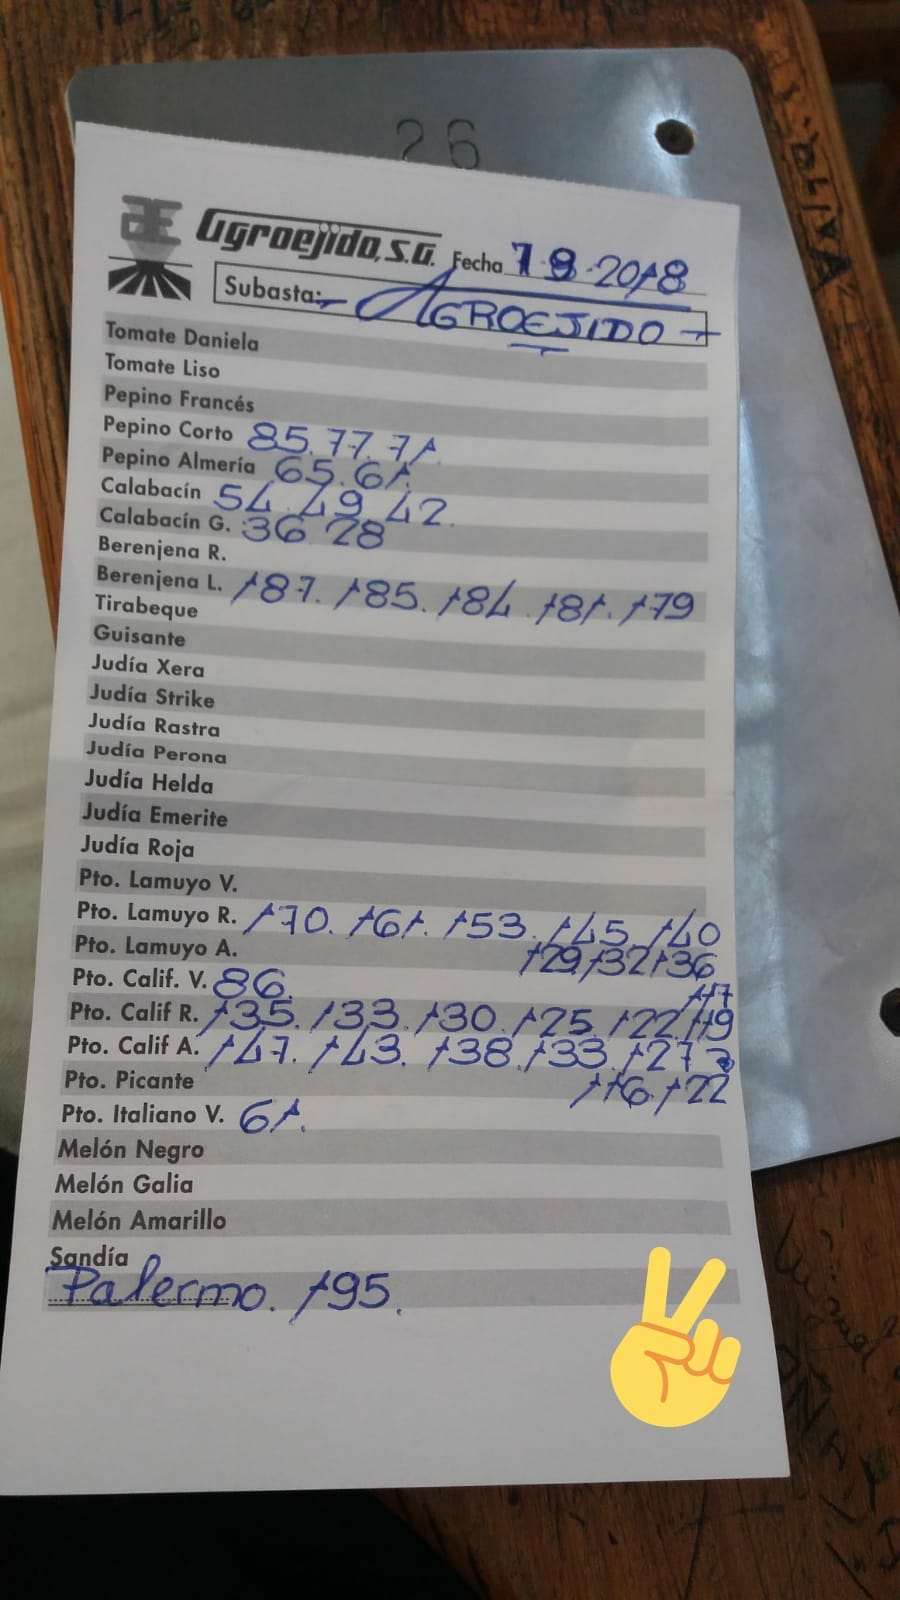 26
AE Agroejido, S.A. Fecha 7 9-2018
Subasta:- AGROEJIDO -
Tomate Daniela
Tomate Liso
Pepino Francés
Pepino Corto 85. 77. 71.
Pepino Almería 65. 61.
Calabacín 54. 49. 42.
Calabacín G. 36 28
Berenjena R.
Berenjena L. 187. 185. 184. 181. 179
Tirabeque
Guisante
Judía Xera
Judía Strike
Judía Rastra
Judía Perona
Judía Helda
Judía Emerite
Judía Roja
Pto. Lamuyo V.
Pto. Lamuyo R. 170. 161. 153. 145. 140
Pto. Lamuyo A. 129. 132 136
Pto. Calif. V. 86. 117
Pto. Calif R. 135. 133. 130. 125. 122. 119
Pto. Calif A. 147. 143. 138. 133. 127
Pto. Picante 116. 122
Pto. Italiano V. 61.
Melón Negro
Melón Galia
Melón Amarillo
Sandía
Palermo. 195.